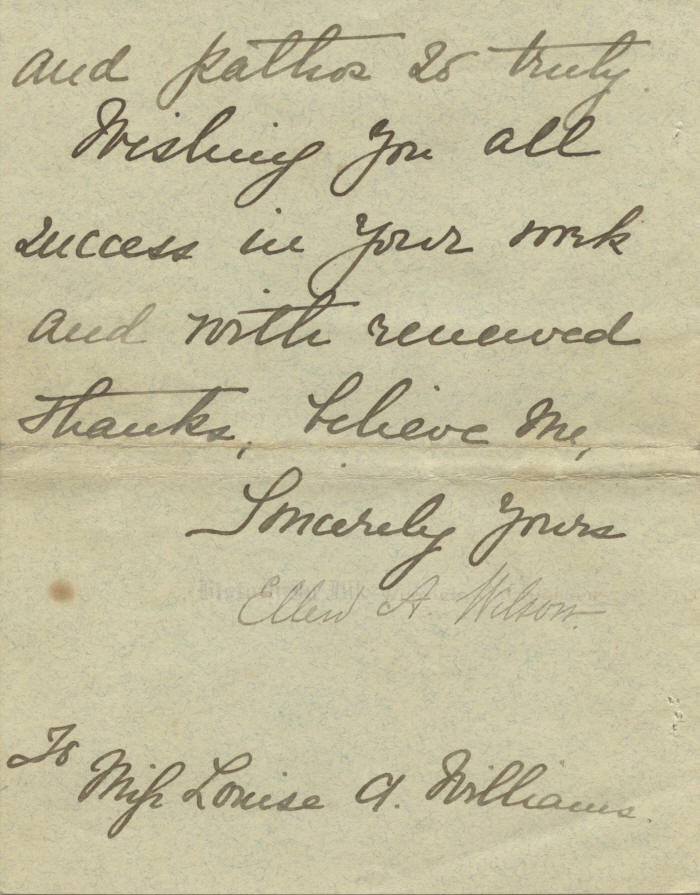 and pathos so truly.
Wishing you all
success in your work
and with renewed
thanks, believe me,
Sincerely yours
Ellen A. Wilson.
To
Miss Louise A. Williams.